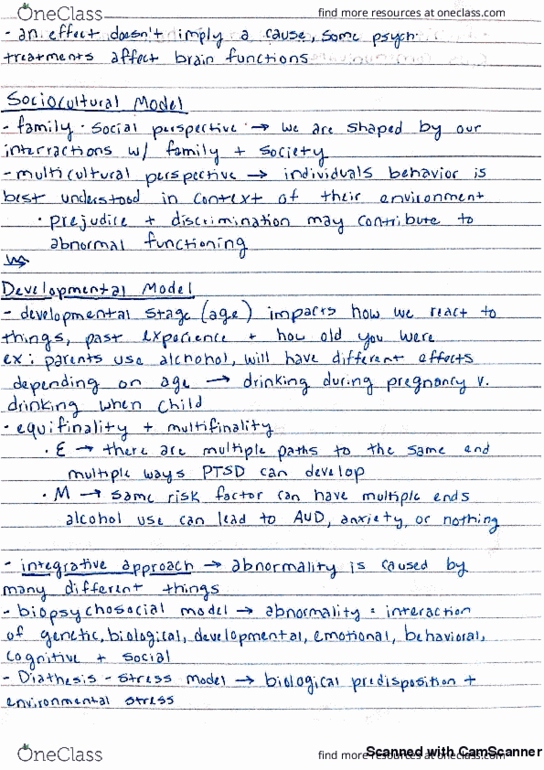 OneClass
find more resources at oneclass.com
- an effect doesn't imply a cause, some psych.
treatments affect brain functions
Sociocultural Model
- family-social perspective → we are shaped by our
interractions w/ family + society
- multicultural perspective → individuals behavior is
best understood in context of their environment
• prejudice + discrimination may contribute to
abnormal functioning
Developmental Model
- developmental stage (age) impacts how we react to
things, past experience + how old you were
ex: parents use alchohol, will have different effects
depending on age → drinking during pregnancy v.
drinking when child
- equifinality + multifinality
• E → there are multiple paths to the same end
multiple ways PTSD can develop
• M → same risk factor can have multiple ends
alcohol use can lead to AUD, anxiety, or nothing
- integrative approach → abnormality is caused by
many different things
- biopsychosocial model → abnormality = interaction
of genetic, biological, developmental, emotional, behavioral,
cognitive + social
- Diathesis - stress model → biological predisposition +
environmental stress
OneClass
find more resources at oneclass.com
Scanned with CamScanner